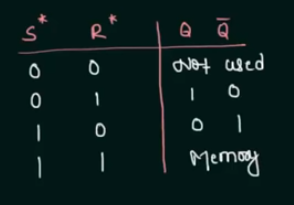 S* R* Q Q̅
0 0 Not used
0 1 1 0
1 0 0 1
1 1 Memory